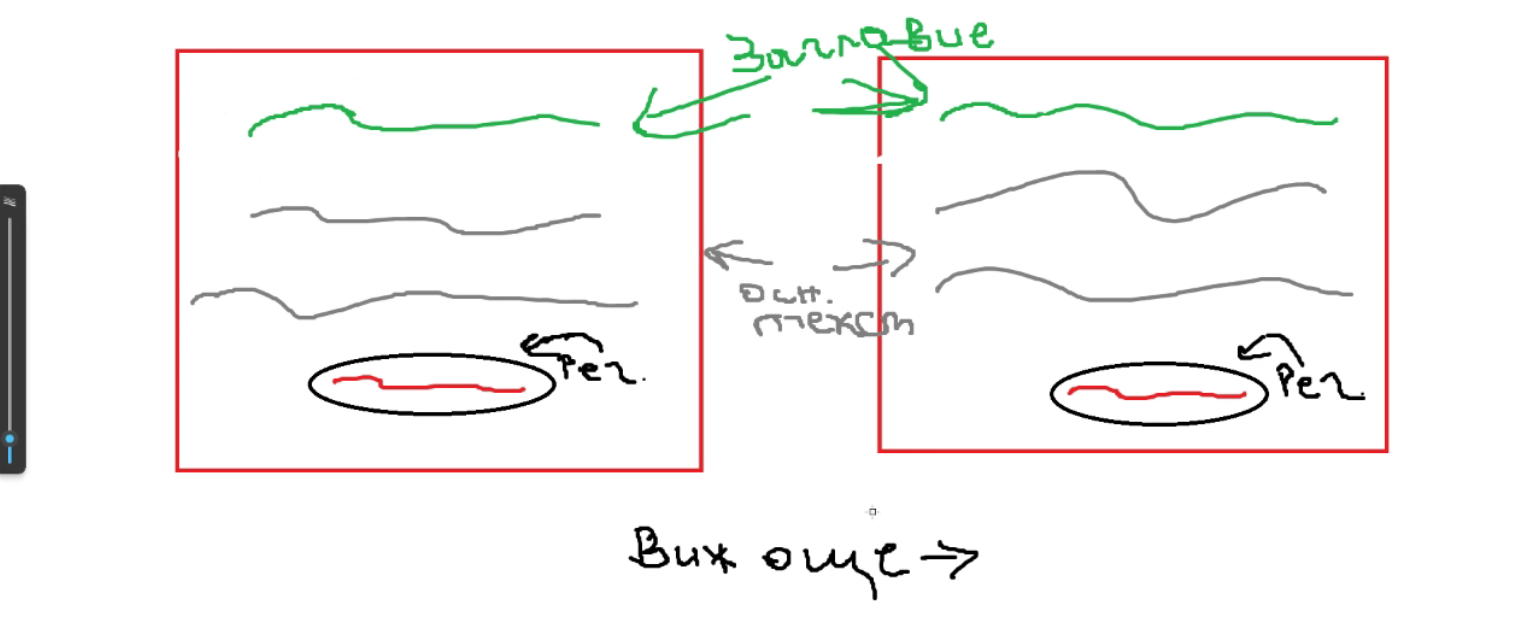 Заглавие
осн.
текст
Рег.
Рег.
Виж още →